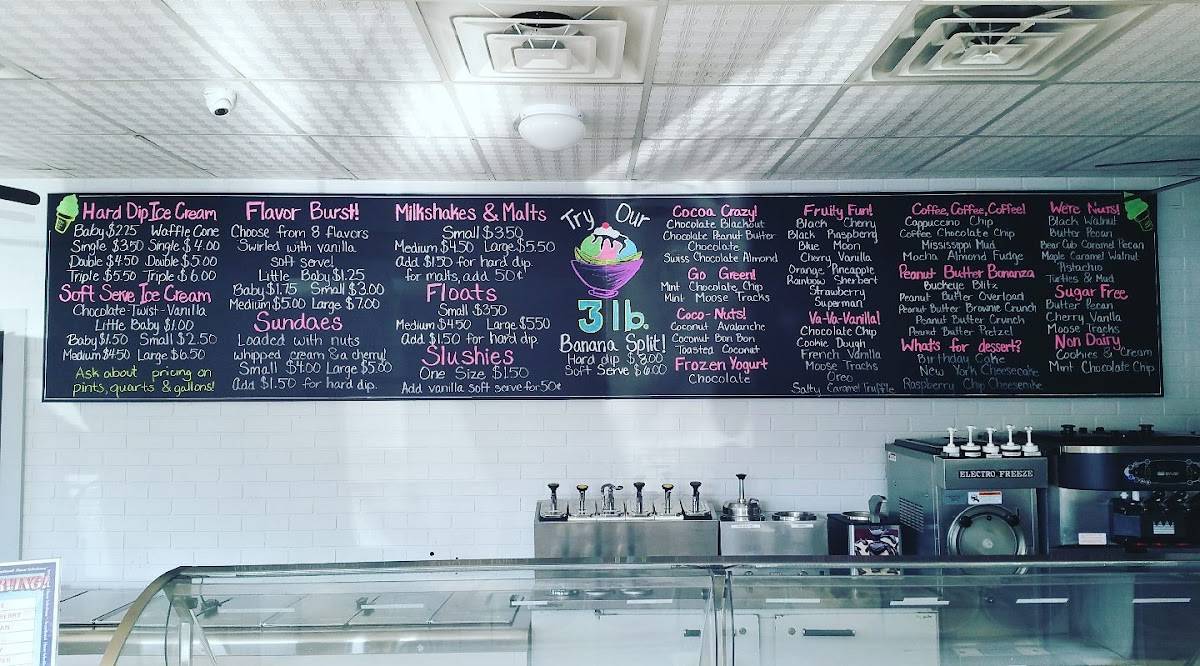 Hard Dip Ice Cream
Baby $2.25 Waffle Cone
Single $3.50 Single $4.00
Double $4.50 Double $5.00
Triple $5.50 Triple $6.00
Soft Serve Ice Cream
Chocolate-Twist-Vanilla
Little Baby $1.00
Baby $1.50 Small $2.50
Medium $4.50 Large $6.50
Ask about pricing on
pints, quarts & gallons!
Flavor Burst!
Choose from 8 flavors
Swirled with vanilla
soft serve!
Little Baby $1.25
Baby $1.75 Small $3.00
Medium $5.00 Large $7.00
Sundaes
Loaded with nuts
whipped cream & a cherry!
Small $4.00 Large $5.00
Add $1.50 for hard dip.
Milkshakes & Malts
Small $3.50
Medium $4.50 Large $5.50
Add $1.50 for hard dip.
for malts, add 50¢
Floats
Small $3.50
Medium $4.50 Large $5.50
Add $1.50 for hard dip.
Slushies
One Size $1.50
Add vanilla soft serve for 50¢
Try Our
3 lb.
Banana Split!
Hard dip $8.00
Soft Serve $6.00
Cocoa Crazy!
Chocolate Blackout
Chocolate Peanut Butter
Chocolate
Swiss Chocolate Almond
Go Green!
Mint Chocolate Chip
Mint Moose Tracks
Coco-Nuts!
Coconut Avalanche
Coconut Bon Bon
Toasted Coconut
Frozen Yogurt
Chocolate
Fruity Fun!
Black Cherry
Black Raspberry
Blue Moon
Cherry Vanilla
Orange Pineapple
Rainbow Sherbert
Strawberry
Superman
Va-Va-Vanilla!
Chocolate Chip
Cookie Dough
French Vanilla
Moose Tracks
Oreo
Salty Caramel Truffle
Coffee, Coffee, Coffee!
Cappuccino Chip
Coffee Chocolate Chip
Mississippi Mud
Mocha Almond Fudge
Peanut Butter Bonanza
Buckeye Blitz
Peanut Butter Overload
Peanut Butter Brownie Crunch
Peanut Butter Crunch
Peanut Butter Pretzel
What's for dessert?
Birthday Cake
New York Cheesecake
Raspberry Chip Cheesecake
We're Nuts!
Black Walnut
Butter Pecan
Bear Cub Caramel Pecan
Maple Caramel Walnut
Pistachio
Turtles & Mud
Sugar Free
Butter Pecan
Cherry Vanilla
Moose Tracks
Non Dairy
Cookies & Cream
Mint Chocolate Chip
ELECTRO FREEZE